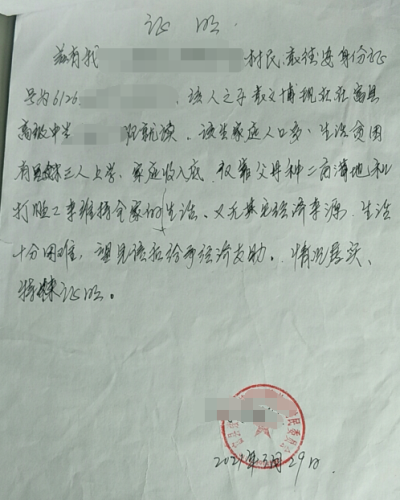 证明
兹有我 村民
号为6126 该人之子 现在在富县
高级中学 就读。该生家庭人口多,生活贫困
有 三人上学,家庭收入底,仅靠父母种二亩薄地和
打临工来维持全家的生活。又无其它经济来源,生活
十分困难,望 给予经济支助。情况属实、
特 证明。
民委员会
2021年 月29日